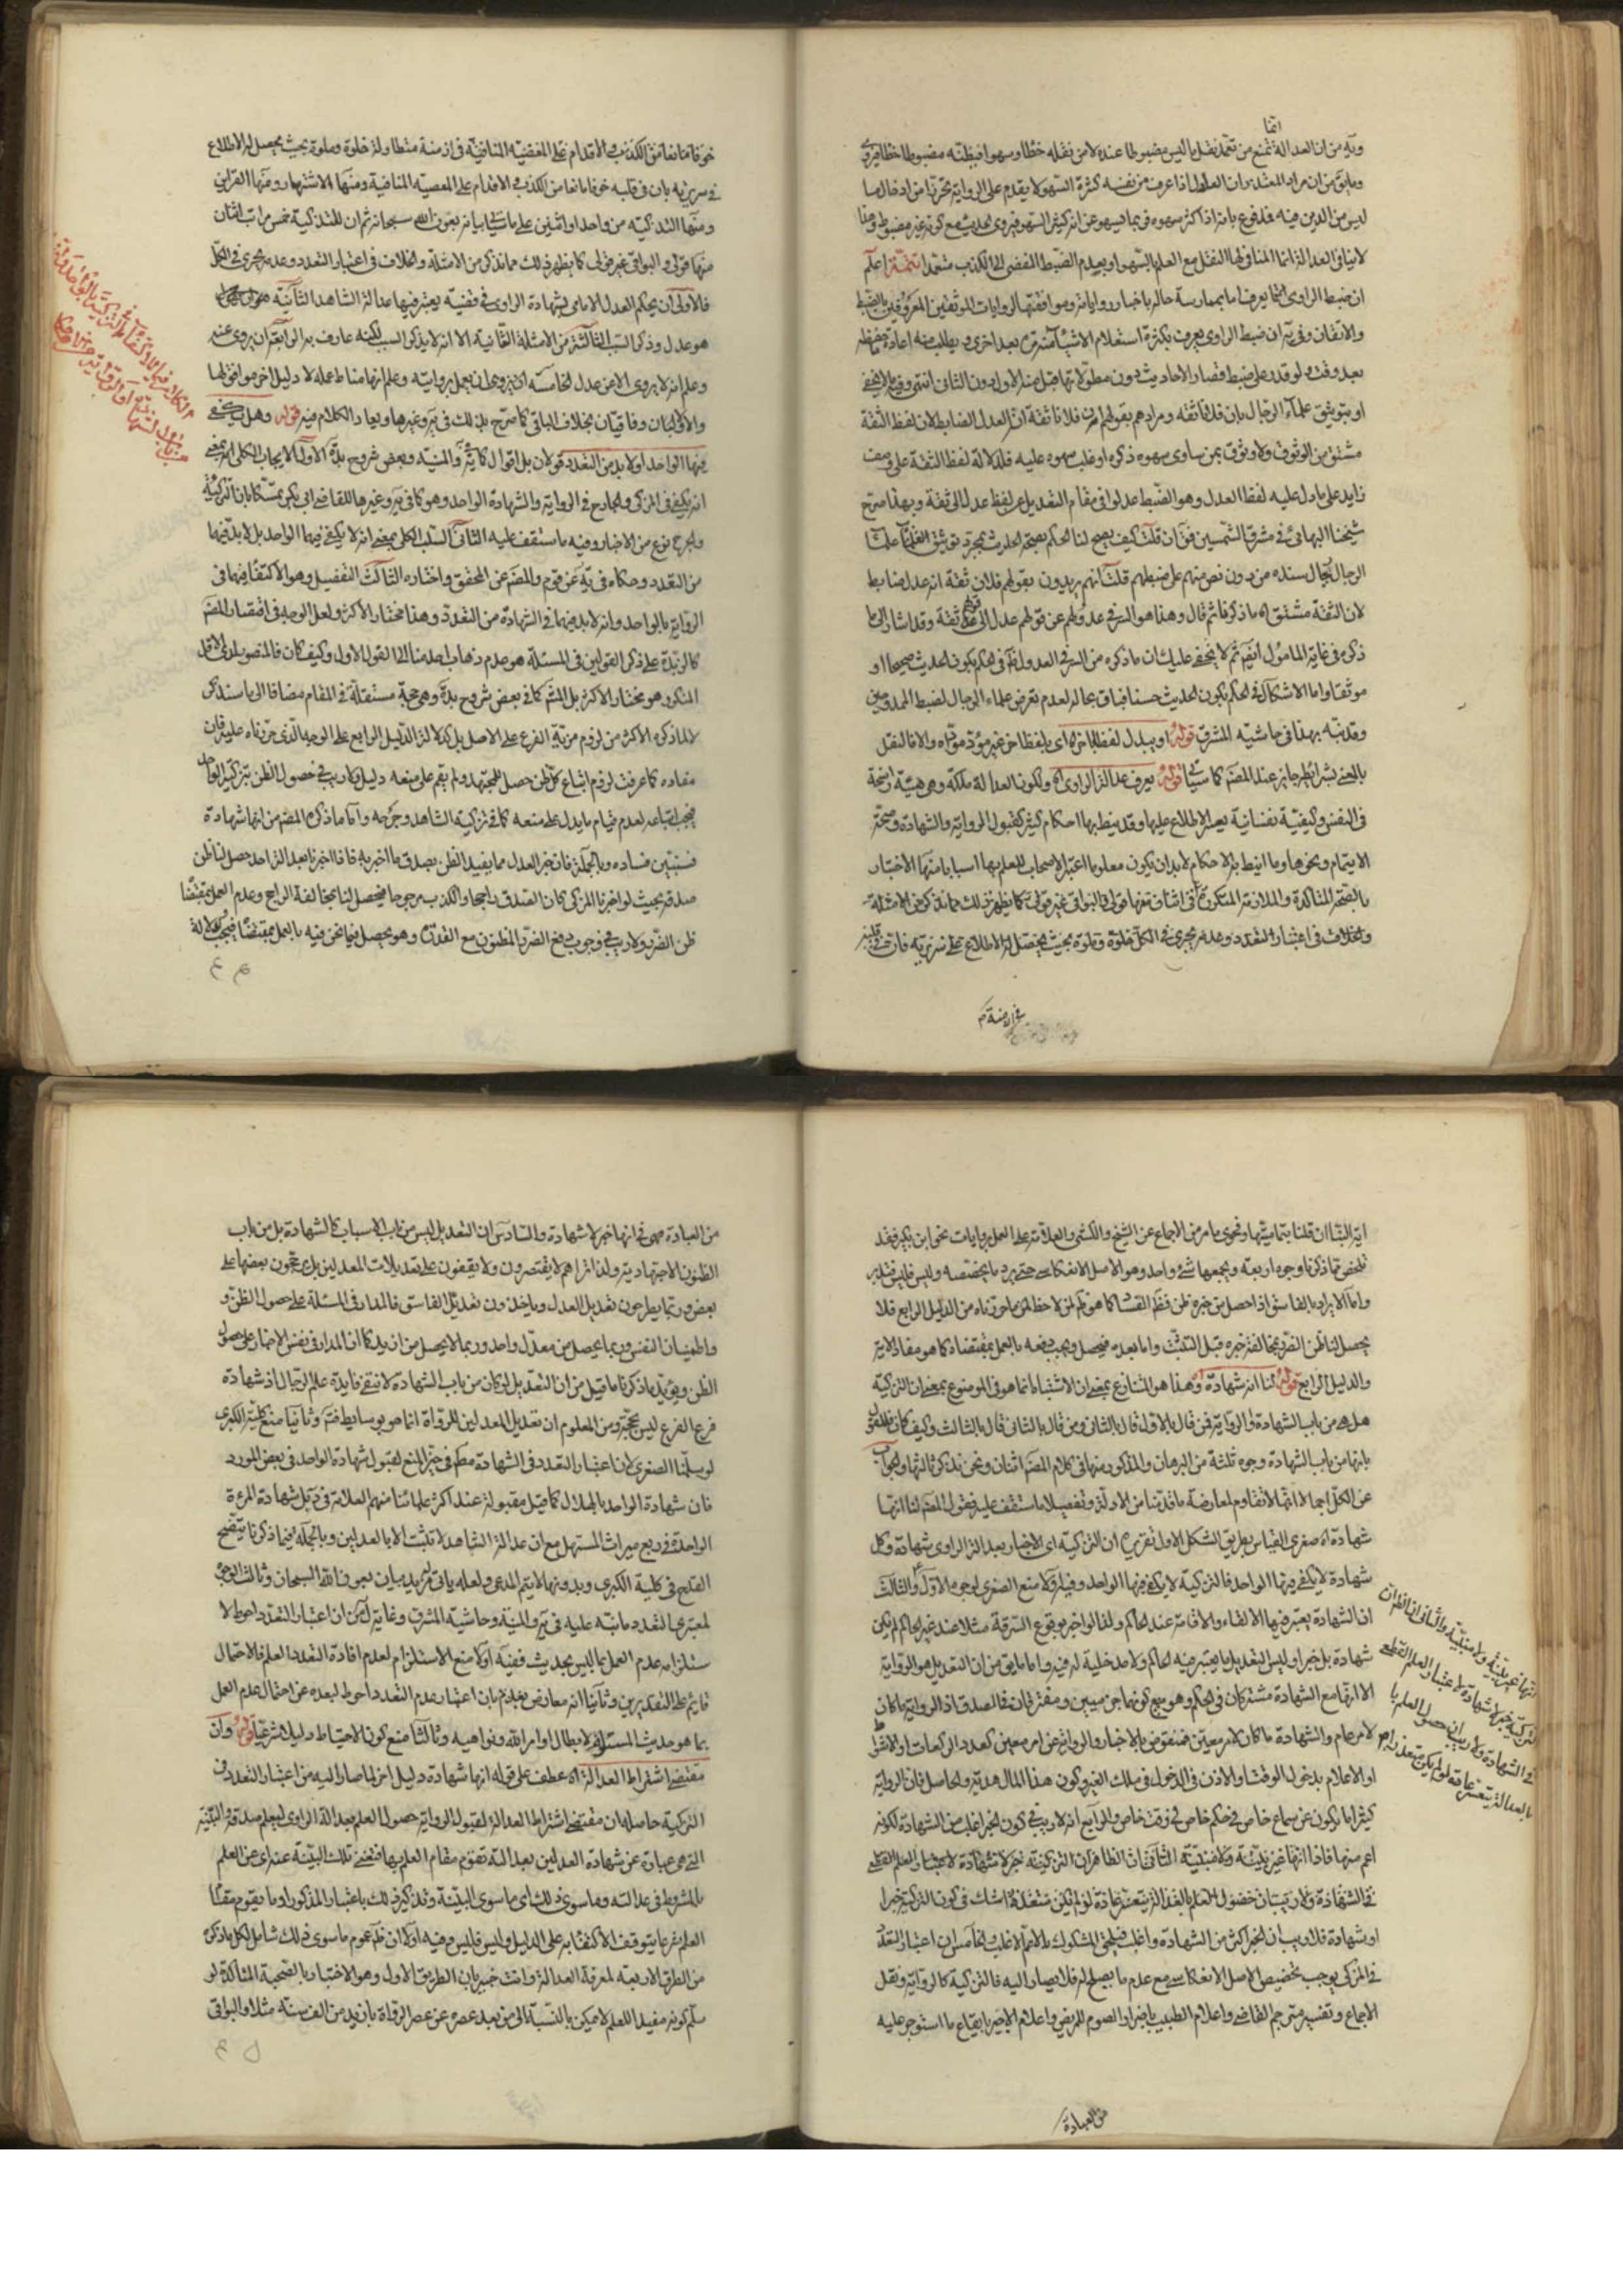 انما
وفيه من ان العدالة تمنع من تعمد نقل ما ليس مضبوطا عنده لا من نقله خطا وسهوا فيظنه مضبوطا
وما يق من ان مراد المعتذر ان العدل اذا عرف من نفسه كثرة السهو لا يقدم على الرواية تحرزا من ادخال ما
ليس من الدين فيه فمدفوع بانه اذا كثر سهوه فربما فيسهو عن انه كثير السهو فيروى الحديث مع كونه غير مضبوط وهذا
لا ينافي العدالة انما المنافي لها النقل مع العلم بالسهو او بعدم الضبط المفضى الى الكذب متعمدا تتمة اعلم
ان ضبط الراوى انما يعرف اما بممارسة حاله باخبار رواياته وموافقتها لروايات الموثقين المعروفين بالضبط
والاتقان وفي ان ضبط الراوى يعرف بكثرة استعلام الاشياء منه مرة بعد اخرى ويطلب منه اعادة
بعد وقت ولو قدر على ضبط قصار الاحاديث دون مطولاتها قبل منه الاول دون الثاني انتهى
او بتوثيق علماء الرجال بان فلانا ثقة ومرادهم بقولهم فلانا ثقة انه العدل الضابط لان لفظ الثقة
مشتق من الوثوق ولا وثوق بمن ساوى سهوه ذكره او غلب سهوه عليه فلدلالة لفظ الثقة على وصف
زايد على ما دل عليه لفظ العدل وهو الضبط عدلوا في مقام التعديل عن لفظ عدل الى ثقة وبهذا صرح
شيخنا البهائى في مشرق الشمسين فى ان قلت كيف يصح لنا الحكم بصحة الحديث بمجرد توثيق علماء
الرجال رجال سنده من دون نص منهم على ضبطهم قلت انهم يريدون بقولهم فلان ثقة انه عدل ضابط
لان الثقة مشتق اه ما ذكرنا ثم قال وهذا هو السر في عدولهم عن قولهم عدل الى قولهم ثقة وقد اشار الى ما
ذكره في غاية المامول ايضم ثم لا يخفى عليك ان ما ذكره من السر في العدول انما في الحكم بكون الحديث صحيحا او
موثقا واما الاشكال في الحكم بكون الحديث حسنا فباق بحاله لعدم تعرض علماء الرجال لضبط الممدوحين
وقد نبه بهذا في حاشيه المشرق قوله او يبدل لفظا باخر اه اى بلفظ اخر غير مؤد موداه والا فالنقل
بالمعنى بشرائطه جايز عند المصم كما سياتي قوله يعرف عدالة الراوى اه ولكون العدالة ملكة وهي هيئة راسخة
في النفس وكيفية نفسانية يعسر الاطلاع عليها وقد نيط بها احكام كثير كقبول الرواية والشهادة وصحة
الايتمام ونحوها وما انيط به الاحكام لا بد ان يكون معلوما اعتبر الاصحاب للعلم بها اسبابا منها الاختبار
بالصحبة المتاكدة والملازمة المتكررة
والخلاف في اعتبار التعدد وعدمه يجرى في الكل خلوة وجلوة بحيث يحصل له الاطلاع على سريرته فان في قلبه
في ازمنة
خوفا مانعا من الكذب والاقدام على المعصية المنافية في ازمنة متطاولة خلوة وجلوة بحيث يحصل له الاطلاع
في سريرته بان في قلبه خوفا مانعا من الكذب والاقدام على المعصية المنافية ومنها الاشتهار ومنها القراين
ومنها التذكية من واحد او اثنين على ما سياتي بيانه بعون الله سبحانه ثم ان للتذكية خمس مراتب اثنان
منها قولى والبواقي غير قولى كما يظهر ذلك مما نذكر من الامثلة والخلاف في اعتبار التعدد وعدمه يجرى في الكل
فالاولى ان يحكم العدل الامامى بشهادة الراوى في قضية يعتبر فيها عدالة الشاهد الثانية
هو عدل وذكر السبب الثالثة من الامثلة الثانية الا انه لا يذكر السبب لكنه عارف به الرابعة ان يروى عنه
وعلم انه لا يروى الا عن عدل الخامسة ان يعمل بروايته وعلم انها مناط عمله لا دليل اخر موافق لها
والاوليان وفاقيان بخلاف الباقي كما صرح بذلك في وغيرها ويعاد الكلام فيه قوله وهل يكفى
فيها الواحد او لا بد من التعدد قولان بل اقوال كما في والمنية وبعض شروح الاول الايجاب الكلى بمعنى
انه يكفى في المزكى والجارح في الرواية والشهادة الواحد وهو كما في وغيرها للقاضي ابى بكر متمسكا بان التزكية
والجرح نوع من الاخبار وفيه ما ستقف عليه الثاني السلب الكلى بمعنى انه لا يكفى فيها الواحد بل لا بد فيها
من التعدد وحكاه في يه عن قوم والمصم عن المحقق واختاره الثالث التفصيل وهو الاكتفاء فيها في
الرواية بالواحد وانه لا بد فيها في الشهادة من التعدد وهذا مختار الاكثر ولعل الوجه في اقتصار المصم
كالزبدة على ذكر القولين في المسئلة هو عدم ذهاب احد منا الى القول الاول وكيف كان فالمنصور لدى الاقل
المنكور هو مختار الاكثر بل المشهور كما في بعض شروح وهى حجة مستقلة في المقام مضافا الى ما سنذكر
لا لما ذكره الاكثر من لزوم مزية الفرع على الاصل بل لدلالة الدليل الرابع على الوجه الذى حررناه عليه فان
مفاده كما عرفت لزوم اتباع كل ظن حصل للمجتهد ولم يقم على منعه دليل ولا ريب في حصول الظن بتزكية الواحد
فيجب اتباعه لعدم قيام ما يدل على منعه كما في تزكية الشاهد وجرحه واما ما ذكره المصم من انها شهادة
فستبين فساده وبالجملة فان خبر العدل مما يفيد الظن بصدق ما اخبر به فاذا اخبرنا بعدالة احد حصل لنا ظن
صدقه بحيث لو اخبرنا المزكى كان الصدق راجحا والكذب مرجوحا فيحصل لنا بمخالفة الراجح وعدم العمل بمقتضاه
ظن الضرر ولا ريب في وجوب دفع الضرر المظنون مع القدرة وهو يحصل فيما نحن فيه بالعمل بمقتضاه
اية النبا ان قلنا بتماميتها وفحوى ما مر من الاجماع عن الشيخ والكشى والعلامة على العمل بروايات نحو ابن بكير فقد
تلخص مما ذكرنا وجوه اربعة ويجمعها شئ واحد وهو الاصل الانعكاسى حتى يرد ما يخصصه وليس فليس فتدبر
واما الايراد بالفاسق اذا حصل من خبره ظن كما هو ظاهر لمن لاحظ ما حررناه من الدليل الرابع فلا
يحصل لنا ظن الضرر بمخالفة خبره قبل التثبت واما بعده فيحصل ويجب دفعه بالعمل بمقتضاه كما هو مفاد الاية
والدليل الرابع قوله لنا انه شهادة وهذا هو المتنازع بمعنى ان الاشتباه انما هو في الموضوع بمعنى ان التزكية
هل هى من باب الشهادة او الرواية فمن قال بالاول قال بالثاني ومن قال بالثاني قال بالثالث وكيف كان فللقول
بانها من باب الشهادة وجوه ثلثة من البرهان والمذكور منها في كلام المصم اثنان ونحن نذكر ثالثها والجواب
عن الكل اجمالا انها لا تقاوم لمعارضة ما قدمنا من الادلة وتفصيلا ما ستقف عليه فقول المصم لنا انها
شهادة اه صغرى القياس بطريق الشكل الاول تقريره ان التزكية اى الاخبار بعدالة الراوى شهادة وكل
شهادة لا يكفى فيها الواحد فالتزكية لا يكفى فيها الواحد وفيه اولا منع الصغرى لوجوه الاول والثالث
ان الشهادة يعتبر فيها الالقاء والاقامة عند الحاكم ولذا لو اخبر بوقوع السرقة مثلا عند غير الحاكم لم يكن
شهادة بل خبر وليس التعديل ما يعتبر فيه الحاكم ولا مدخلية له فيه واما ما يق من ان التعديل هو الرواية
الا انها مع الشهادة مشتركان في الحكم وهو كونهما جزميين ومفترقان فالصدق اذ الرواية ما كان
لامر عام والشهادة ما كان لامر معين فمنقوض بالاخبار والرواية عن امر معين كعدد الركعات
او الاعلام بدخول الوقت او الاذن في الدخول في ملك الغير وكون هذا المال هدية والحاصل فان الرواية
كثيرا ما يكون عن سماع خاص في حكم خاص في وقت خاص والرابع انه لا ريب في كون الخبر اغلب من الشهادة لكونه
اعم منها فاذا انها غير بينة ولا مبينة الثاني ان الظاهر ان التزكية خبر لا شهادة لاعتبار العلم القطعى
في الشهادة ولا ريب ان حصول العلم بالعدالة متعسر عادة لو لم يكن متعذرا اشك في كون التزكية خبرا
او شهادة فلا ريب ان الخبر اكثر من الشهادة واغلب فيلحق المشكوك بالاعم الاغلب والخامس ان اعتبار التعدد
في المزكى يوجب تخصيص الاصل الانعكاسى مع عدم ما يصلح له فلا يصار اليه فالتزكية كالرواية ونقل
الاجماع وتفسير مترجم القاضى واعلام الطبيب باضرار الصوم للمريض واعلام الاجير بايقاع ما استوجر عليه
انها غير بينة ولا مبينة والثاني ان الظاهر ان
التزكية خبر لا شهادة لاعتبار العلم القطعى
في الشهادة ولا ريب ان حصول العلم
بالعدالة متعسر عادة لو لم يكن متعذرا
من العبادة
من العبادة في انها خبر لا شهادة والسادس ان التعديل ليس من باب الاسباب كالشهادة بل من باب
الظنون الاجتهادية ولذا تراهم لا يقتصرون ولا يقفون على تعديلات المعدلين بل يرجحون بعضها على
بعض وربما يطرحون تعديل العدل وياخذون تعديل الفاسق فالمدار في المسئلة على حصول الظن و
واطمينان النفس وربما يحصل من معدل واحد وربما لا يحصل من ازيد كما ان المدار في نفس الاخبار على حصول
الظن ويؤيد ما ذكرنا ما قيل من ان التعديل لو كان من باب الشهادة لانتفى فايدة علم الرجال اذ شهادة
فرع الفرع ليس بحجة ومن المعلوم ان تعديل المعدلين للرواة انما هو بوسايط وثانيا منع كلية الكبرى
لو سلمنا الصغرى لان اعتبار التعدد في الشهادة مطم في حيز المنع لقبول شهادة الواحد في بعض الموارد
فان شهادة الواحد بالهلال كما قيل مقبولة عند اكثر علمائنا منهم العلامة بل شهادة المرءة
الواحدة في ربع ميراث المستهل مع ان عدالة الشاهد لا تثبت الا بالعدلين وبالجملة فيما ذكرنا يتضح
القدح في كلية الكبرى وبدونها لا يتم المدعى ولعله ياتي لهذا مزيد بيان بعون الله السبحان وثالث الوجوه
لمعتبرى التعدد ما نبه عليه في والمنية وحاشية المشرق وغاية من ان اعتبار التعدد احوط لا
ستلزامه عدم العمل بما ليس بحديث ففيه اولا منع الاستلزام لعدم افادة التعدد العلم فالاحتمال
قايم على التقديرين وثانيا انه معارض بان اعتبار عدم التعدد احوط لبعده عن احتمال عدم العمل
بما هو حديث المستلزم لابطال اوامر الله ونواهيه وثالثا منع كون الاحتياط دليلا شرعيا قوله وان
مقتضى اشتراط العدالة اه عطف على قوله انها شهادة دليل اخر لما صار اليه من اعتبار التعدد في
التزكية حاصله ان مقتضى اشتراط العدالة لقبول الرواية حصول العلم بعدالة الراوى ليعلم صدقه والبينة
التى هى عبارة عن شهادة العدلين بعدالته تقوم مقام العلم بها فتغنى تلك البينة عنه اى عن العلم
بالشرط في عدالته وما سوى ذلك اى ما سوى البينة وتذكير ذلك باعتبار المذكور او ما يقوم مقام
العلم شرعا يتوقف الاكتفاء به على الدليل وليس فليس وفيه اولا ان ظم عموم ما سوى ذلك شامل لكل ما ذكر
من الطرق الاربعة لمعرفة العدالة وانت خبير بان الطريق الاول وهو الاختبار بالصحبة المتاكدة لو
سلم كونه مفيدا للعلم لا يمكن بالنسبة الى من بعد عصره عن عصر الرواة بازيد من الف سنة مثلا والبواقى